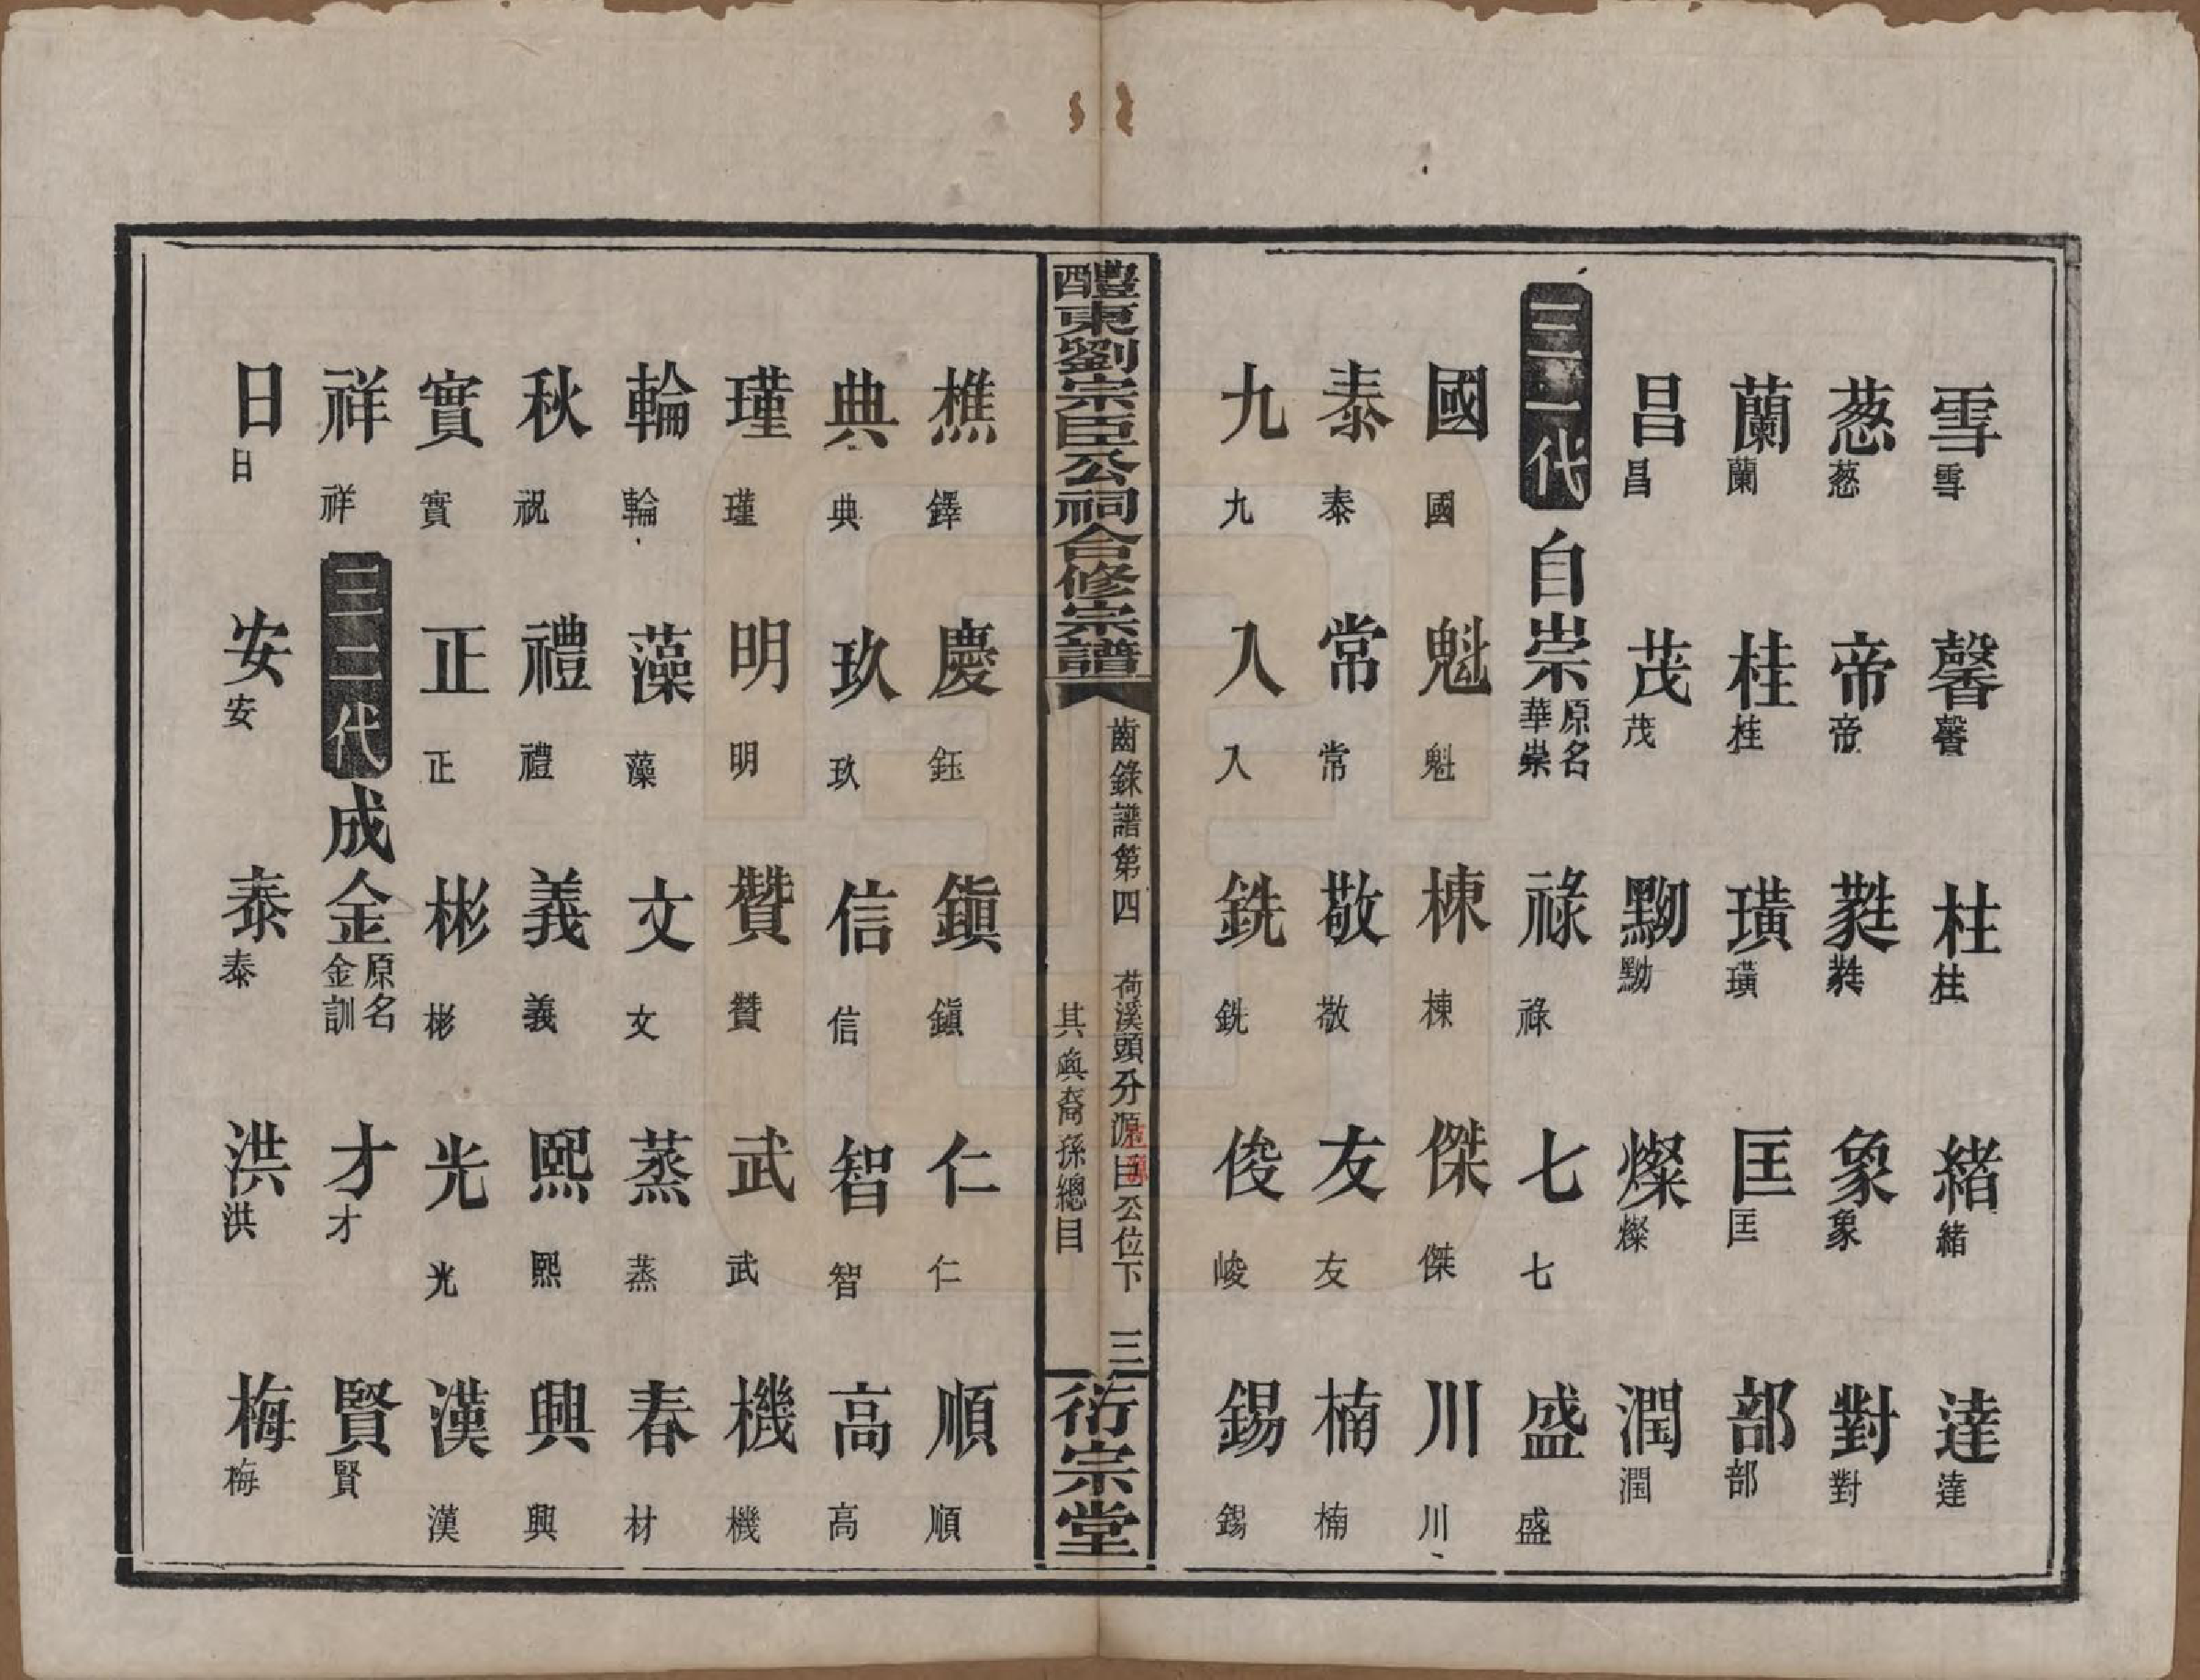 雪雪 馨馨 柱柱 緒緒 達達
葱葱 帝帝 蕤蕤 象象 對對
蘭蘭 桂桂 璜璜 匡匡 部部
昌昌 茂茂 黝黝 燦燦 潤潤
三一代 自崇原名華崇 祿祿 七七 盛盛
國國 魁魁 棟棟 傑傑 川川
泰泰 常常 敬敬 友友 楠楠
九九 入入 銑銑 俊峻 錫錫
醴東劉宗臣公祠合修宗譜
齒錄譜第四 荷溪頭分源 公位下 三
其 裔孫總目
衍宗堂
樵鐸 慶鈺 鎮鎮 仁仁 順順
典典 玖玖 信信 智智 高高
瑾瑾 明明 贊贊 武武 機機
輪輪 藻藻 文文 蒸蒸 春材
秋祝 禮禮 義義 熙熙 興興
實實 正正 彬彬 光光 漢漢
祥祥 三二代 成金原名金訓 才才 賢賢
日日 安安 泰泰 洪洪 梅梅